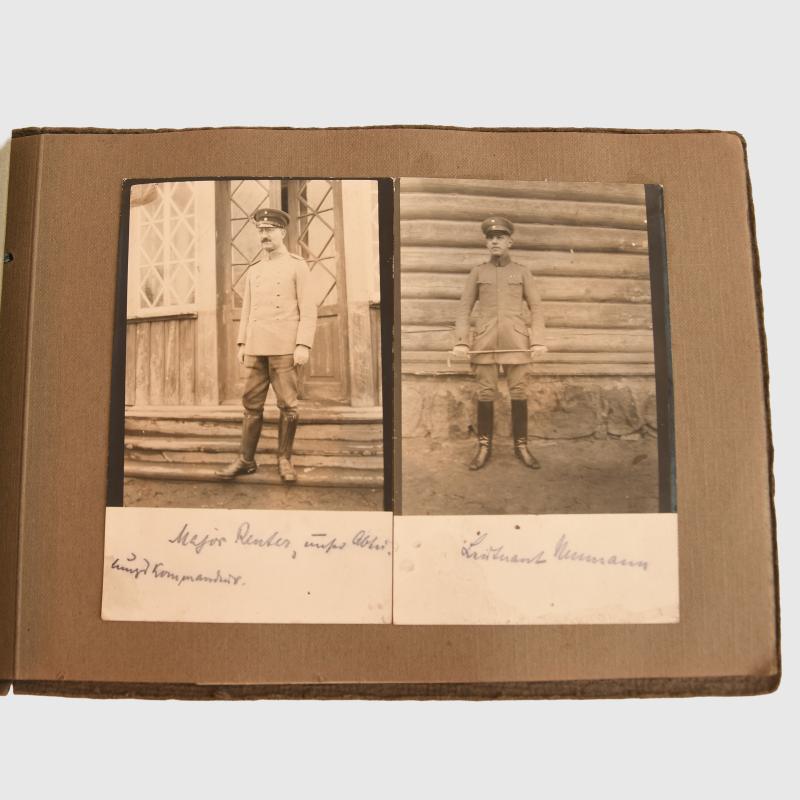 Major Renter, unser Abtei-
lungskommandeur.
Leutnant Neumann